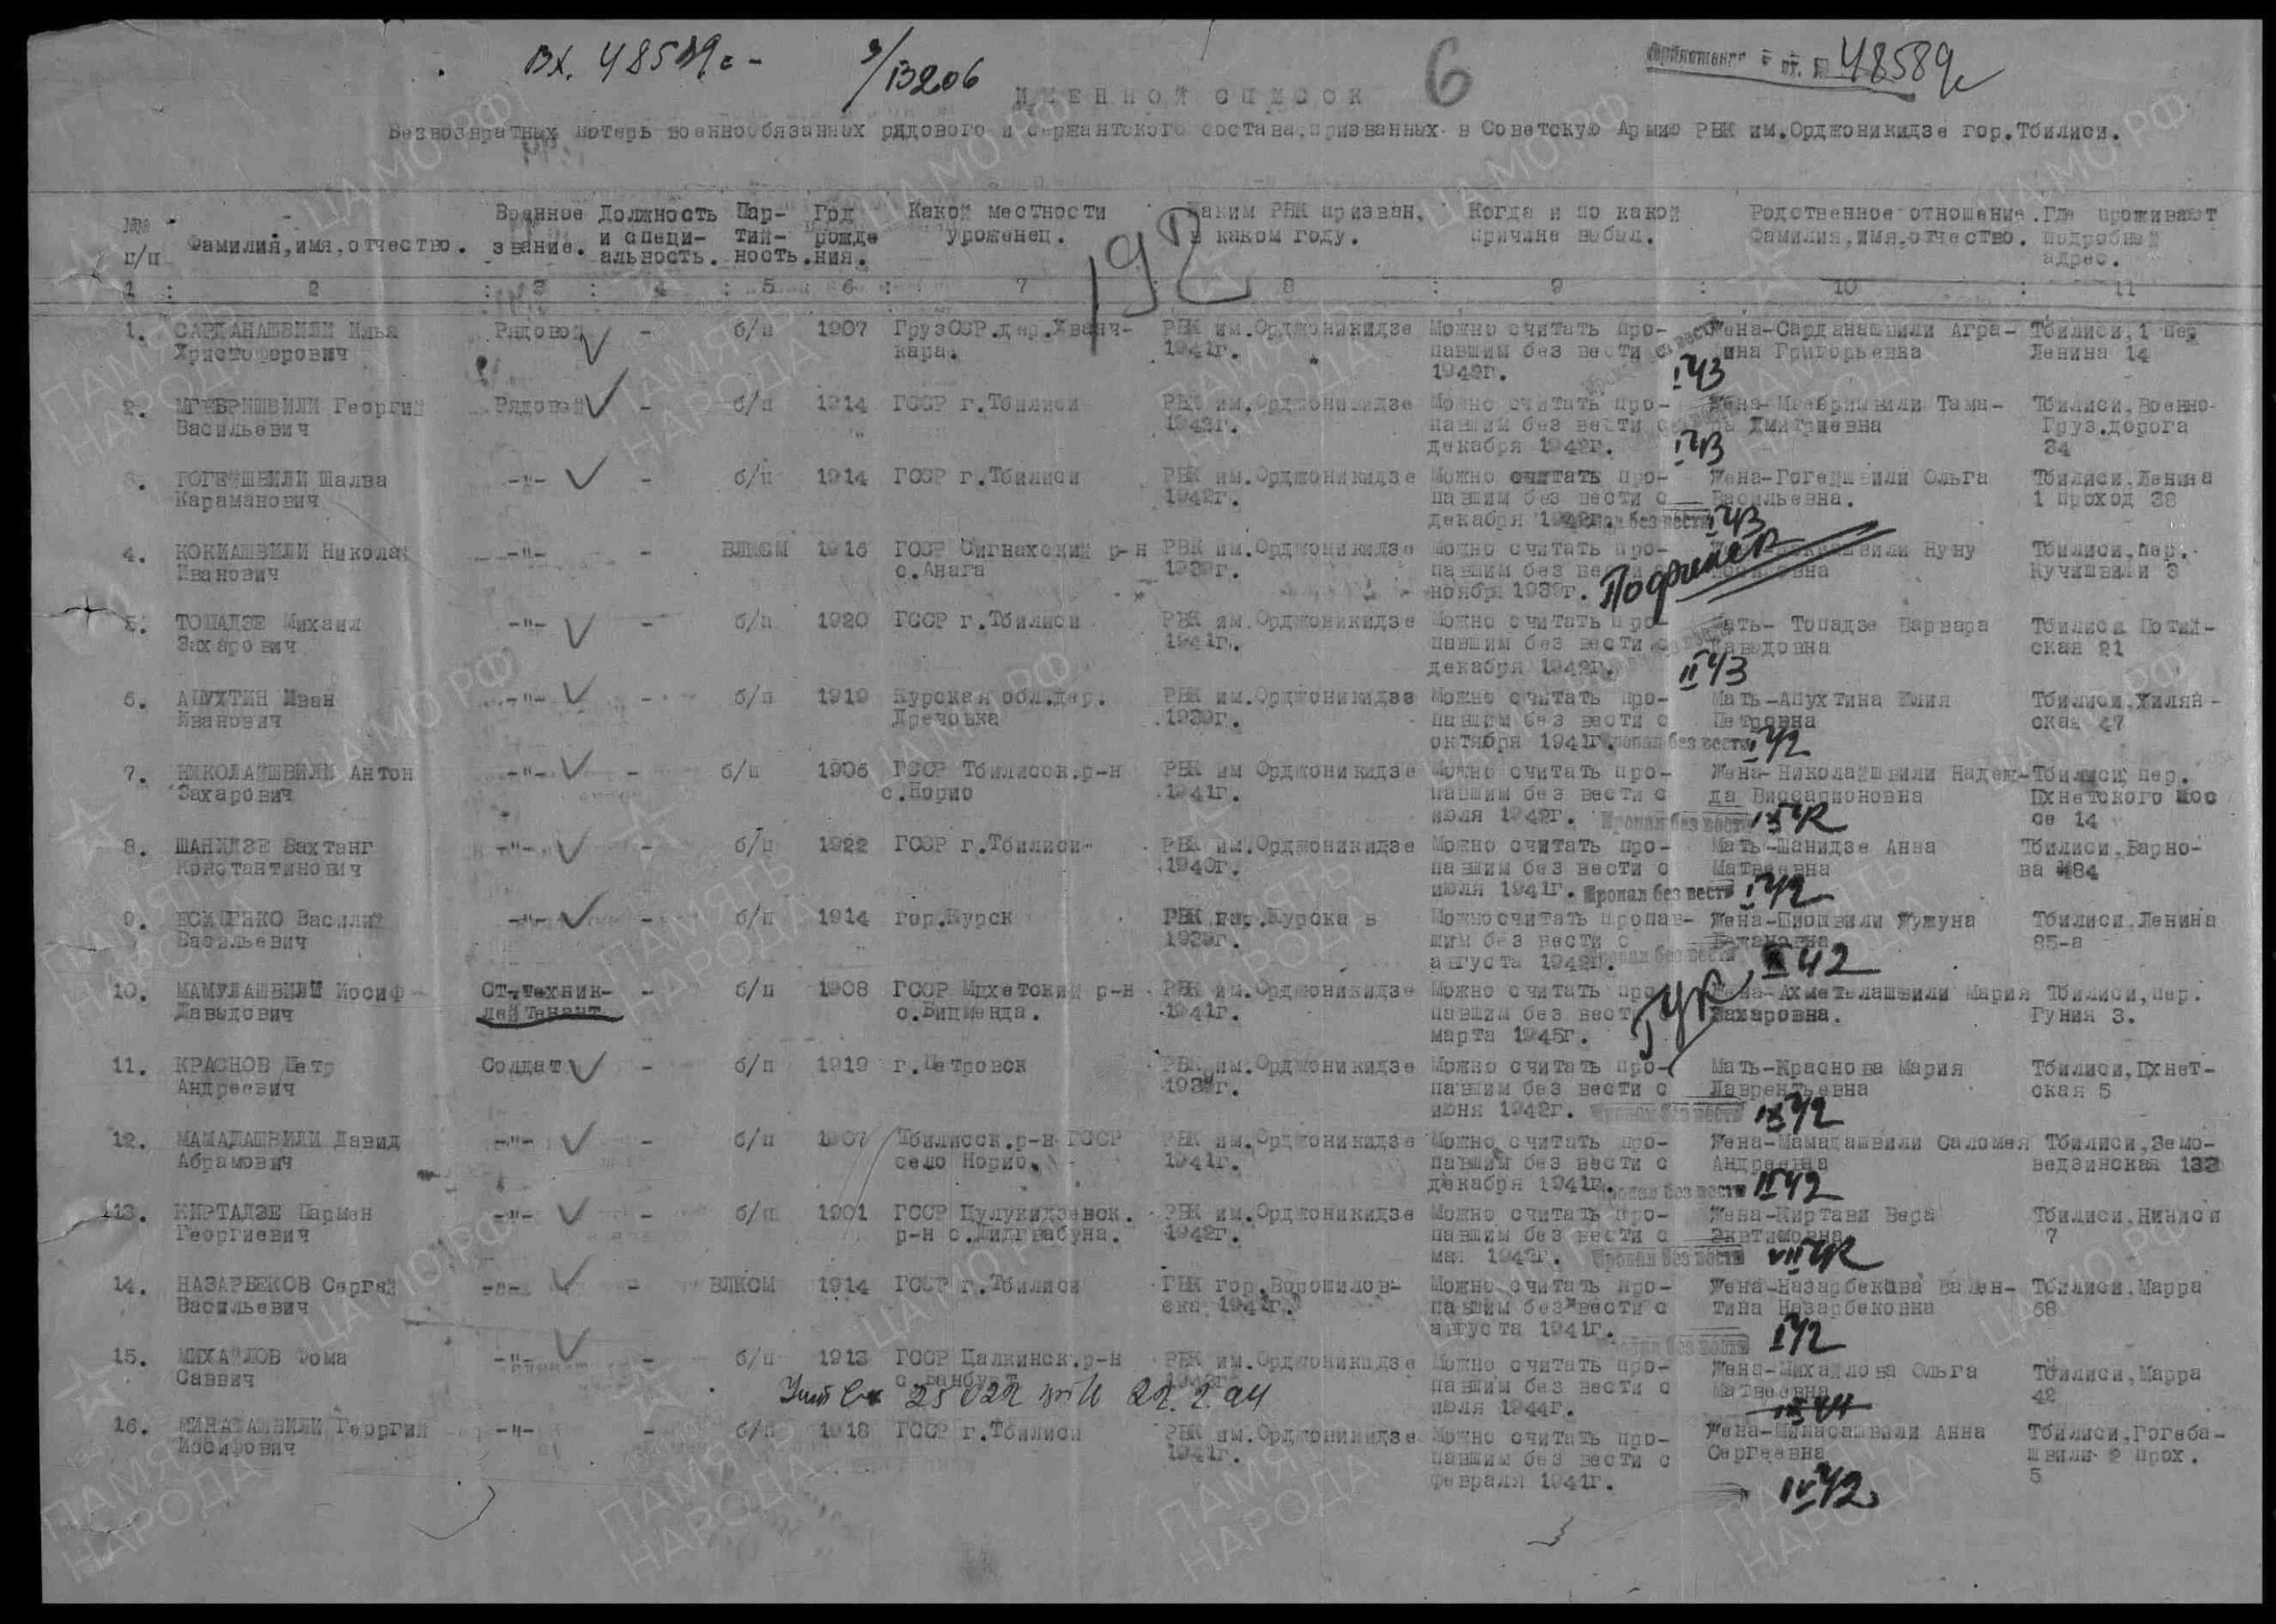 Вх. 48589с-
9/13206
6
48589с
ИМЕННОЙ СПИСОК
Безвозвратных потерь военнообязанных рядового и сержантского состава, призванных в Советскую Армию РВК им.Орджоникидзе гор.Тбилиси.
192
№№ п/п Фамилия,имя,отчество. Военное звание. Должность и специ-альность. Пар-тий-ность. Год рожде ния. Какой местности уроженец. Каким РВК призван, в каком году. Когда и по какой причине выбыл. Родственное отношение. Фамилия,имя,отчество. Где проживают подробный адрес.
1 : 2 : 3 : 4 : 5 : 6 : 7 : 8 : 9 : 10 : 11
1. САРДАНАШВИЛИ Илья Рядовой - б/п 1907 ГрузССР.дер.Хванч- РВК им.Орджоникидзе Можно считать про- Жена-Сарданашвили Агра- Тбилиси,1 пер
Христофорович кара. 1941г. павшим без вести с ина Григорьевна Ленина 14
1942г. I 43
2. МГЕБРИШВИЛИ Георгий Рядовой - б/п 1914 ГССР г.Тбилиси РВК им.Орджоникидзе Можно считать про- Жена-Мгебришвили Тама- Тбилиси,Военно-
Васильевич 1942г. павшим без вести с ра Дмитриевна Груз.дорога
декабря 1942г. 34
3. ГОГЕЙШВИЛИ Шалва -"- - б/п 1914 ГССР г.Тбилиси РВК им.Орджоникидзе Можно считать про- Жена-Гогейшвили Ольга Тбилиси,Ленина
Караманович 1942г. павшим без вести с Васильевна. 1 проход 38
декабря 1942г. Пропал без вести I 43
4. КОКИАШВИЛИ Николай -"- - ВЛКСМ 1916 ГССР Сигнахский р-н РВК им.Орджоникидзе Можно считать про- Нуну Тбилиси,пер.
Иванович с.Анага 1939г. павшим без вести Кучишвили 3
ноября 1939г.
5. ТОПАДЗЕ Михаил -"- - б/п 1920 ГССР г.Тбилиси РВК им.Орджоникидзе Можно считать про- Мать- Топадзе Варвара Тбилиси Потий-
Захарович 1941г. павшим без вести с Давыдовна ская 21
декабря 1942г. II 43
6. АПУХТИН Иван -"- - б/п 1919 Курская обл.дер. РВК им.Орджоникидзе Можно считать про- Мать-Апухтина Юлия Тбилиси,Хилян-
Иванович Дречовка 1939г. павшим без вести с Петровна ская 47
октября 1941г. Пропал без вести I 42
7. НИКОЛАЙШВИЛИ Антон -"- - б/п 1906 ГССР Тбилисск.р-н РВК им Орджоникидзе Можно считать про- Жена-Николайшвили Надеж- Тбилиси, пер.
Захарович с.Норио 1941г. павшим без вести с да Виссарионовна Цхнетского шос
июля 1942г. Пропал без вести се 14
8. ШАНИДЗЕ Вахтанг -"- - б/п 1922 ГССР г.Тбилиси РВК им.Орджоникидзе Можно считать про- Мать-Шанидзе Анна Тбилиси,Варно-
Константинович 1940г. павшим без вести с Матвеевна ва 484
июля 1941г. Пропал без вести I 42
9. ЕСИПЕНКО Василий -"- - б/п 1914 гор.Курск РВК гор.Курска в Можно считать пропав- Жена-Пиошвили Жужуна Тбилиси,Ленина
Васильевич 1939г. шим без вести с 85-а
августа 1942г. Пропал без вести 42
10. МАМУЛАШВИЛИ Иосиф Ст.техник- - б/п 1908 ГССР Мцхетский р-н РВК им.Орджоникидзе Можно считать про- Жена-Ахметелашвили Мария Тбилиси,пер.
Давыдович лейтенант с.Бицменда. 1941г. павшим без вести Захаровна. Гуния 3.
марта 1945г.
11. КРАСНОВ Петр Солдат - б/п 1919 г.Петровск РВК им.Орджоникидзе Можно считать про- Мать-Краснова Мария Тбилиси,Цхнет-
Андреевич 1939г. павшим без вести с Лаврентьевна ская 5
июня 1942г. Пропал без вести IX 42
12. МАМАДАШВИЛИ Давид -"- - б/п 1907 Тбилисск.р-н ГССР РВК им.Орджоникидзе Можно считать про- Жена-Мамадашвили Саломея Тбилиси,Земо-
Абрамович село Норио. 1941г. павшим без вести с Андреевна ведзинская 133
декабря 1941г. Пропал без вести II 42
13. КИРТАДЗЕ Пармен -"- - б/п 1901 ГССР Цулукидзевск. РВК им.Орджоникидзе Можно считать про- Жена-Киртави Вера Тбилиси,Ниниси
Георгиевич р-н с.Дидгвабуна. 1942г. павшим без вести с Эквтимовна 7
мая 1942г. Пропал без вести VII 42
14. НАЗАРБЕКОВ Сергей -"- - ВЛКСМ 1914 ГССР г.Тбилиси ГВК гор.Ворошилов- Можно считать про- Жена-Назарбекова Вален- Тбилиси,Марра
Васильевич ска 1941г. павшим без вести с тина Назарбековна 68
августа 1941г. Пропал без вести I 42
15. МИХАЙЛОВ Фома -"- - б/п 1913 ГССР Цалкинск.р-н РВК им.Орджоникидзе Можно считать про- Жена-Михайлова Ольга Тбилиси,Марра
Саввич павшим без вести с Матвеевна 42
июля 1944г.
16. МИНАСАШВИЛИ Георгий -"- - б/п 1918 ГССР г.Тбилиси РВК им.Орджоникидзе Можно считать про- Жена-Минасашвили Анна Тбилиси,Гогеба-
Иосифович 1941г. павшим без вести с Сергеевна швили 2 прох.
февраля 1941г. IV 42 5
ПАМЯТЬ НАРОДА
ЦАМО РФ